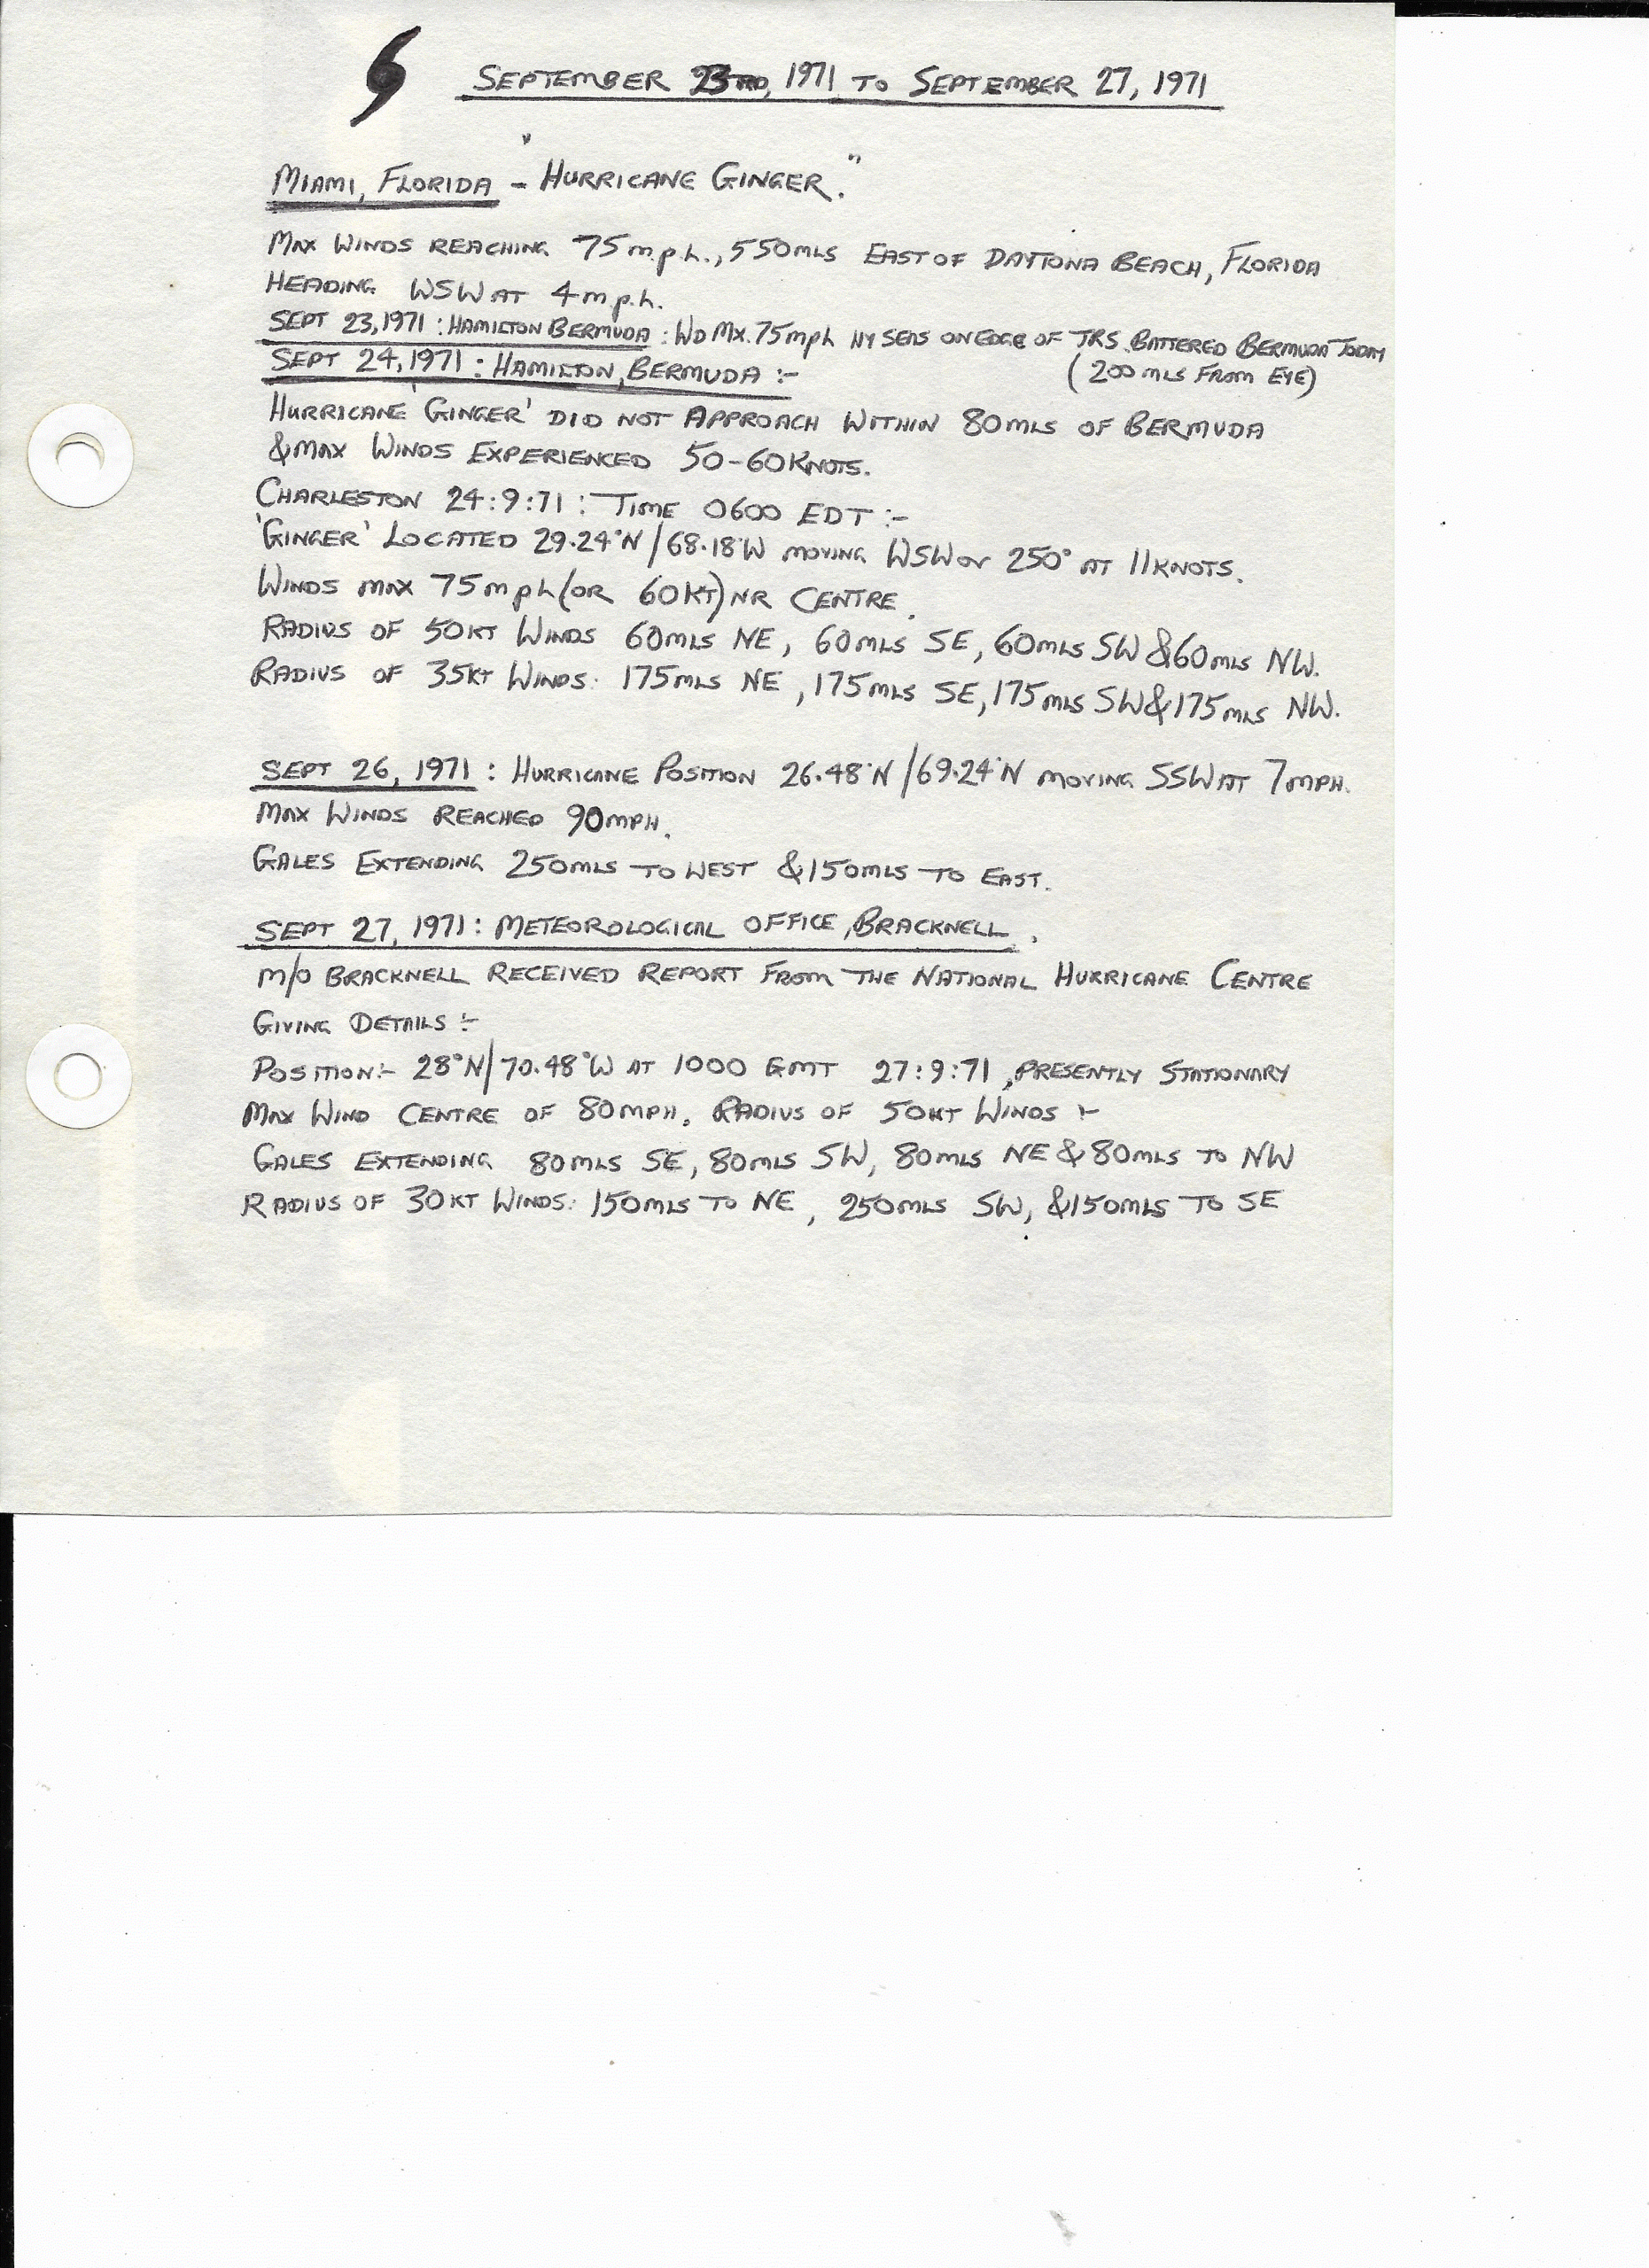 SEPTEMBER 23RD, 1971 TO SEPTEMBER 27, 1971
MIAMI, FLORIDA - "HURRICANE GINGER."
MAX WINDS REACHING 75 m.p.h., 550MLS EAST OF DAYTONA BEACH, FLORIDA
HEADING WSW AT 4 m.p.h.
SEPT 23, 1971 : HAMILTON BERMUDA : WD MX. 75mph HY SEAS ON EDGE OF TRS BATTERED BERMUDA TODAY
(200 MLS FROM EYE)
SEPT 24, 1971 : HAMILTON, BERMUDA :-
HURRICANE 'GINGER' DID NOT APPROACH WITHIN 80MLS OF BERMUDA
& MAX WINDS EXPERIENCED 50-60 KNOTS.
CHARLESTON 24:9:71 : TIME 0600 EDT :-
'GINGER' LOCATED 29.24°N / 68.18°W MOVING WSW OR 250° AT 11 KNOTS.
WINDS MAX 75 mph (OR 60KT) NR CENTRE.
RADIUS OF 50KT WINDS 60MLS NE, 60MLS SE, 60MLS SW & 60MLS NW.
RADIUS OF 35KT WINDS: 175MLS NE, 175MLS SE, 175MLS SW & 175MLS NW.
SEPT 26, 1971 : HURRICANE POSITION 26.48°N / 69.24°N MOVING SSW AT 7MPH.
MAX WINDS REACHED 90MPH.
GALES EXTENDING 250MLS TO WEST & 150MLS TO EAST.
SEPT 27, 1971 : METEOROLOGICAL OFFICE, BRACKNELL.
M/O BRACKNELL RECEIVED REPORT FROM THE NATIONAL HURRICANE CENTRE
GIVING DETAILS :-
POSITION:- 28°N / 70.48°W AT 1000 GMT 27:9:71, PRESENTLY STATIONARY
MAX WIND CENTRE OF 80MPH. RADIUS OF 50KT WINDS :-
GALES EXTENDING 80MLS SE, 80MLS SW, 80MLS NE & 80MLS TO NW
RADIUS OF 30KT WINDS: 150MLS TO NE, 250MLS SW, & 150MLS TO SE